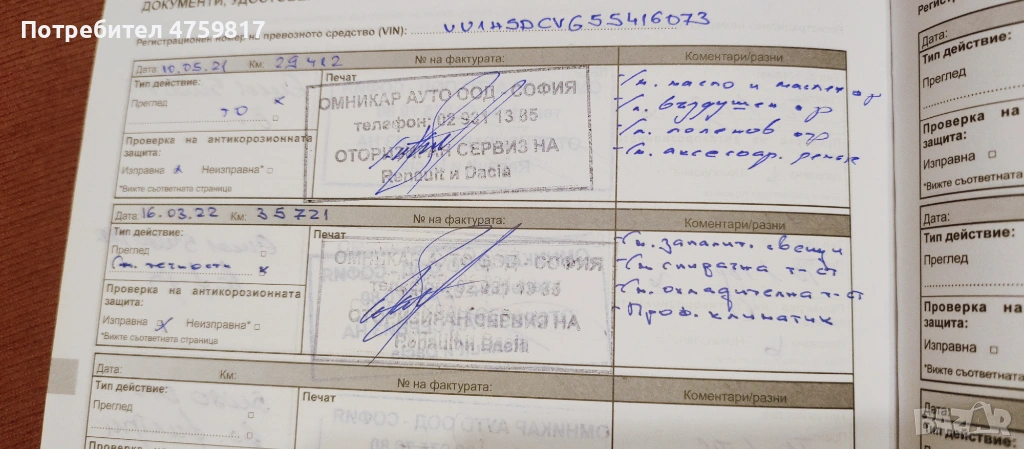 Потребител 4759817
ДОКУМЕНТИ, УДОСТОВЕ
Регистрационен номер на превозното средство (VIN): VV1HSDCVG55416073
Дата: 10.05.21 Км: 29412 № на фактурата: Коментари/разни
Тип действие: Печат
Преглед
ТО x
Проверка на антикорозионната
защита:
Изправна x Неизправна*
*Вижте съответната страница
ОМНИКАР АУТО ООД - СОФИЯ
телефон: 02 931 13 85
ОТОРИЗИРАН СЕРВИЗ НА
Renault и Dacia
- См. масло и маслен ф-р
- См. въздушен ф-р
- См. поленов ф-р
Дата: 16.03.22 Км: 35721 № на фактурата: Коментари/разни
Тип действие: Печат
Преглед
См. течности x
Проверка на антикорозионната
защита:
Изправна x Неизправна*
*Вижте съответната страница
ОМНИКАР АУТО ООД - СОФИЯ
ОТОРИЗИРАН СЕРВИЗ НА
Renault и Dacia
- См. запалит. свещи
- См. спирачна т-ст
- См. охладителна т-ст
- Проф. климатик
Дата: Км: № на фактурата: Коментари/разни
Тип действие: Печат
Преглед
ОМНИКАР АУТО ООД - СОФИЯ
Дата:
Тип действие:
Преглед
Проверка на
защита:
Изправна
*Вижте съответната
Дата:
Тип действие:
Преглед
Проверка на
защита:
Изправна
*Вижте съответната
Дата:
Тип действие:
BAZAR